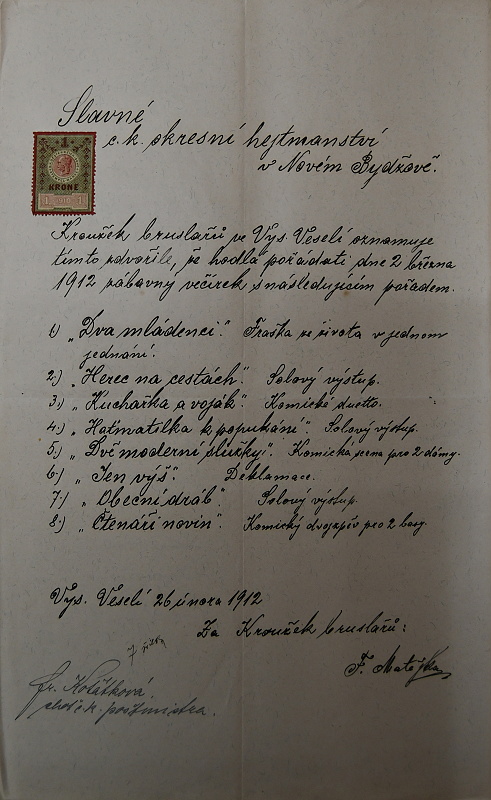 Slavné
c. k. okresní hejtmanství
v Novém Bydžově.
1
KRONE
1 1910 1
Kroužek bruslařů ve Vys. Veselí oznamuje
tímto zdvořile, že hodlá pořádati dne 2 března
1912 zábavný večírek s následujícím pořadem.
1) „Dva mládenci." Fraška ze života v jednom
jednání.
2.) „Herec na cestách". Solový výstup.
3.) „Kuchařka a voják". Komické duetto.
4.) „Haťmatilka k popukání". Solový výstup.
5.) „Dvě moderní služky". Komická scena pro 2 dámy.
6.) „Jen výš". Deklamace.
7.) „Obecní dráb". Solový výstup.
8.) „Čtenáři novin". Komický dvojzpěv pro 2 basy.
Vys. Veselí 26 února 1912
Za Kroužek bruslařů:
F. Matějka
fr. Koťátková
choť c. k. poštmistra.